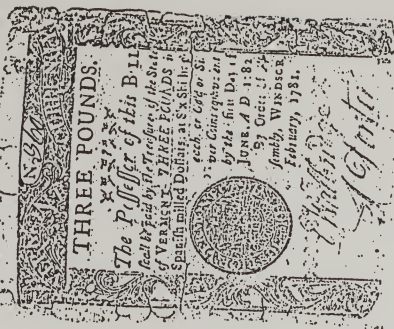 THREE POUNDS.
The Possessor of this BILL
shall be paid by the Treasurer of the State
of VERMONT, THREE POUNDS in
Spanish milled Dollars, at Six Shillings
each, or Gold or Sil-
ver Coins equivalent
by the first Day of
JUNE, A D 1782
By Order of
sembly, WINDSOR
February, 1781.